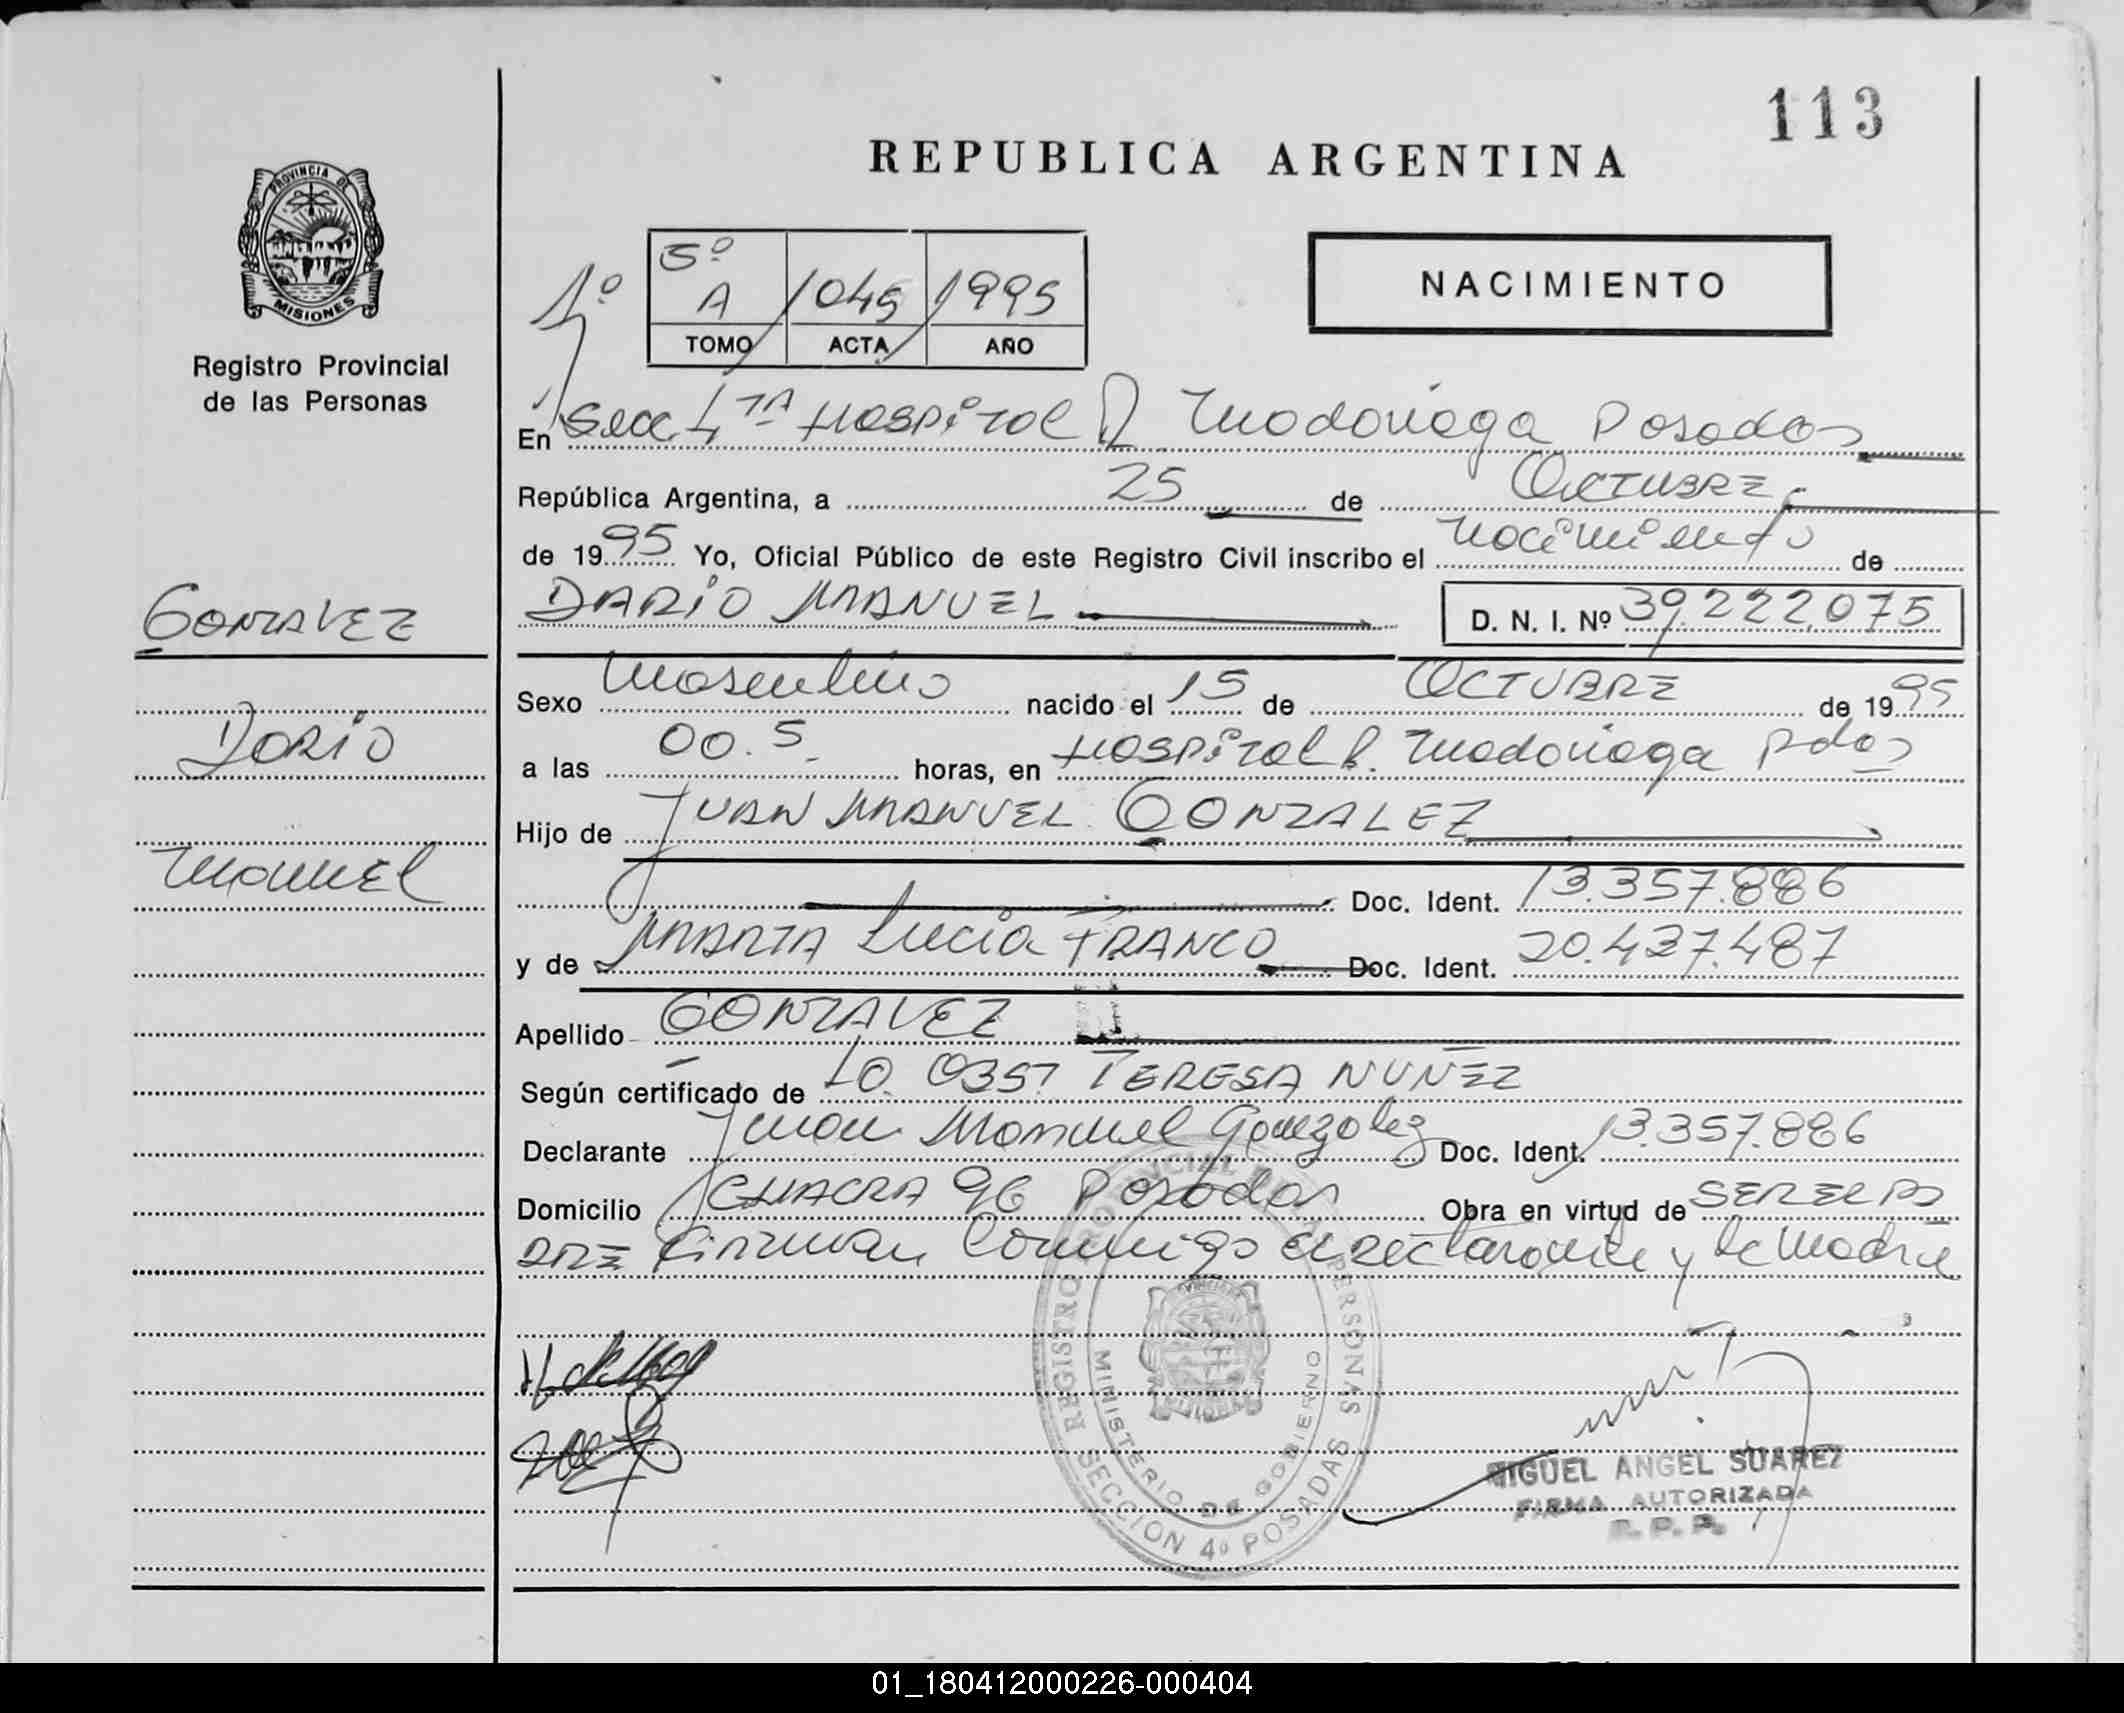 113
REPUBLICA ARGENTINA
PROVINCIA DE MISIONES
Registro Provincial
de las Personas
1º
5º A 1045 1995
TOMO ACTA AÑO
NACIMIENTO
En Secc. 4TA Hospital R Madariaga Posadas
República Argentina, a 25 de OCTUBRE
de 1995 Yo, Oficial Público de este Registro Civil inscribo el nacimiento de
DARIO MANUEL D. N. I. Nº 39.222.075
GONZALEZ
Dario
Manuel
Sexo Masculino nacido el 15 de OCTUBRE de 1995
a las 00.5 horas, en Hospital R. Madariaga Pdas
Hijo de JUAN MANUEL GONZALEZ
Doc. Ident. 13.357.886
y de MARTA Lucia FRANCO Doc. Ident. 20.437.487
Apellido GONZALEZ
Según certificado de LO. 0357 TERESA NUÑEZ
Declarante Juan Manuel Gonzalez Doc. Ident. 13.357.886
Domicilio CHACRA 96 Posadas Obra en virtud de SER EL PA
DRE Firman Conmigo el declarante y la Madre
REGISTRO PROVINCIAL DE LAS PERSONAS
MINISTERIO DE GOBIERNO
SECCION 4º POSADAS
MIGUEL ANGEL SUAREZ
FIRMA AUTORIZADA
R. P. P.
01_180412000226-000404